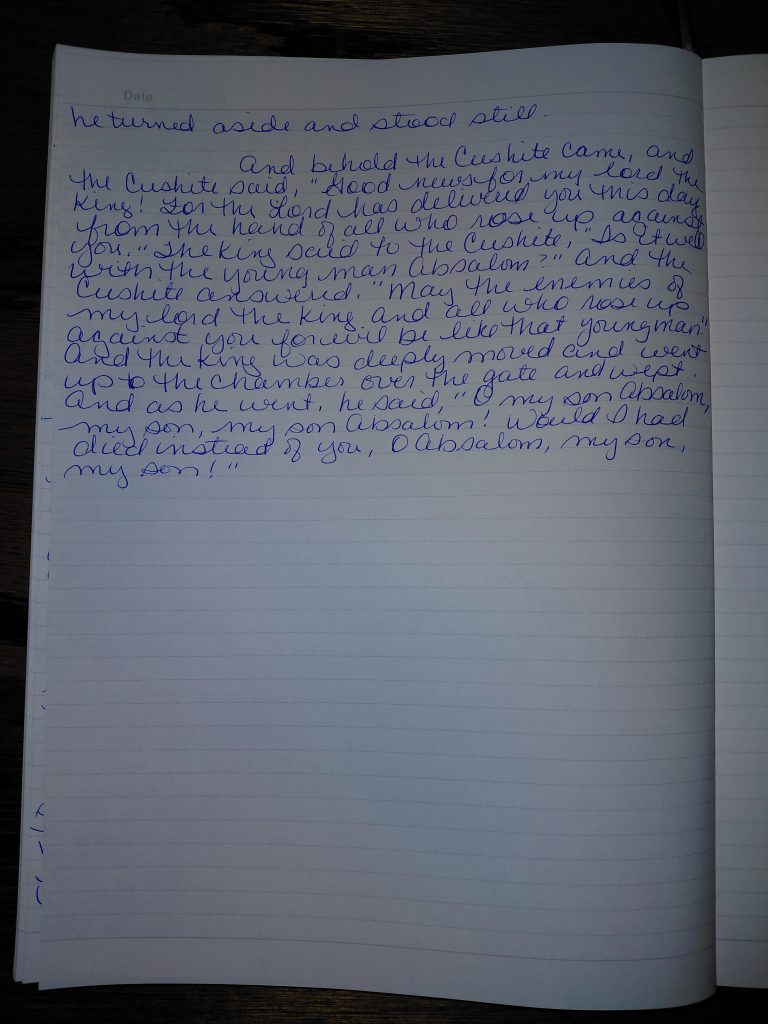 Date:
he turned aside and stood still.
And behold the Cushite came, and
the Cushite said, "Good news for my lord the
King! For the Lord has delivered you this day
from the hand of all who rose up against
you." The king said to the Cushite, "Is it well
with the young man Absalom?" And the
Cushite answered, "May the enemies of
my lord the king and all who rose up
against you for evil be like that young man."
And the king was deeply moved and went
up to the chamber over the gate and wept.
And as he went, he said, "O my son Absalom,
my son, my son Absalom! Would I had
died instead of you, O Absalom, my son,
my son!"